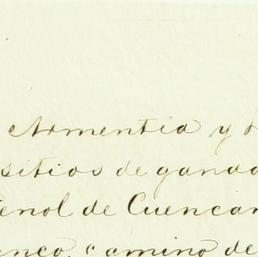 Armentia y
sitios de ganado
enol de Cuencam
enco, camino de